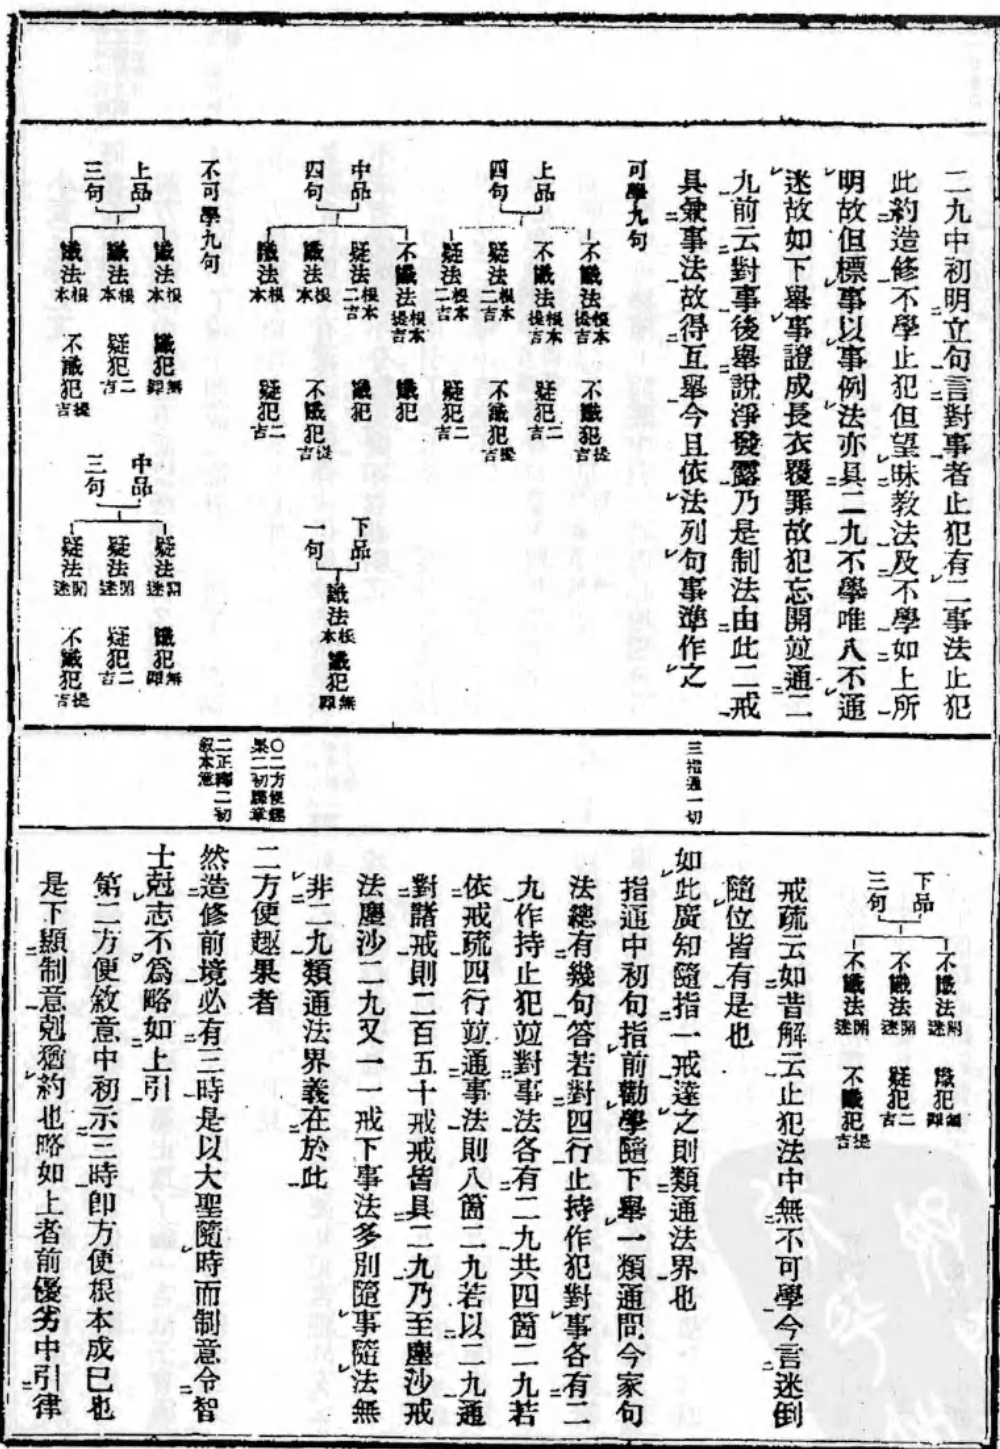 二九中初明立句言對事者止犯有二事法止犯
此約造修不學止犯但望昧教法及不學如上所
明故但標事以事例法亦具二九不學唯八不通
迷故如下舉事證成長衣覆罪故犯忘開竝通二
九前云對事後舉說淨發露乃是制法由此二戒
具兼事法故得互舉今且依法列句事準作之
可學九句
上品四句
不識法根本提吉 不識犯提吉
不識法根本提吉 疑犯二吉
疑法根本二吉 不識犯提吉
疑法根本二吉 疑犯二吉
中品四句
不識法根本提吉 識犯
疑法根本二吉 識犯
識法根本 不識犯提吉
識法根本 疑犯二吉
下品一句
識法根本 識犯無罪
不可學九句
上品三句
識法根本 識犯無罪
識法根本 疑犯二吉
識法根本 不識犯提吉
中品三句
疑法開迷 識犯無罪
疑法開迷 疑犯二吉
疑法開迷 不識犯提吉
下品三句
不識法開迷 識犯無罪
不識法開迷 疑犯二吉
不識法開迷 不識犯提吉
戒疏云如昔解云止犯法中無不可學今言迷倒
隨位皆有是也
三指通一切
如此廣知隨指一戒達之則類通法界也
指通中初句指前勸學隨下舉一類通問今家句
法總有幾句答若對四行止持作犯對事各有二
九作持止犯竝對事法各有二九共四箇二九若
依戒疏四行竝通事法則八箇二九若以二九通
對諸戒則二百五十戒戒皆具二九乃至塵沙戒
法塵沙二九又一一戒下事法多別隨事隨法無
非二九類通法界義在於此
〇二方便趣果二初牒章
二方便趣果者
二正釋二初敘本意
然造修前境必有三時是以大聖隨時而制意令智
士剋志不爲略如上引
第二方便敘意中初示三時卽方便根本成已也
是下顯制意剋猶約也略如上者前優劣中引律